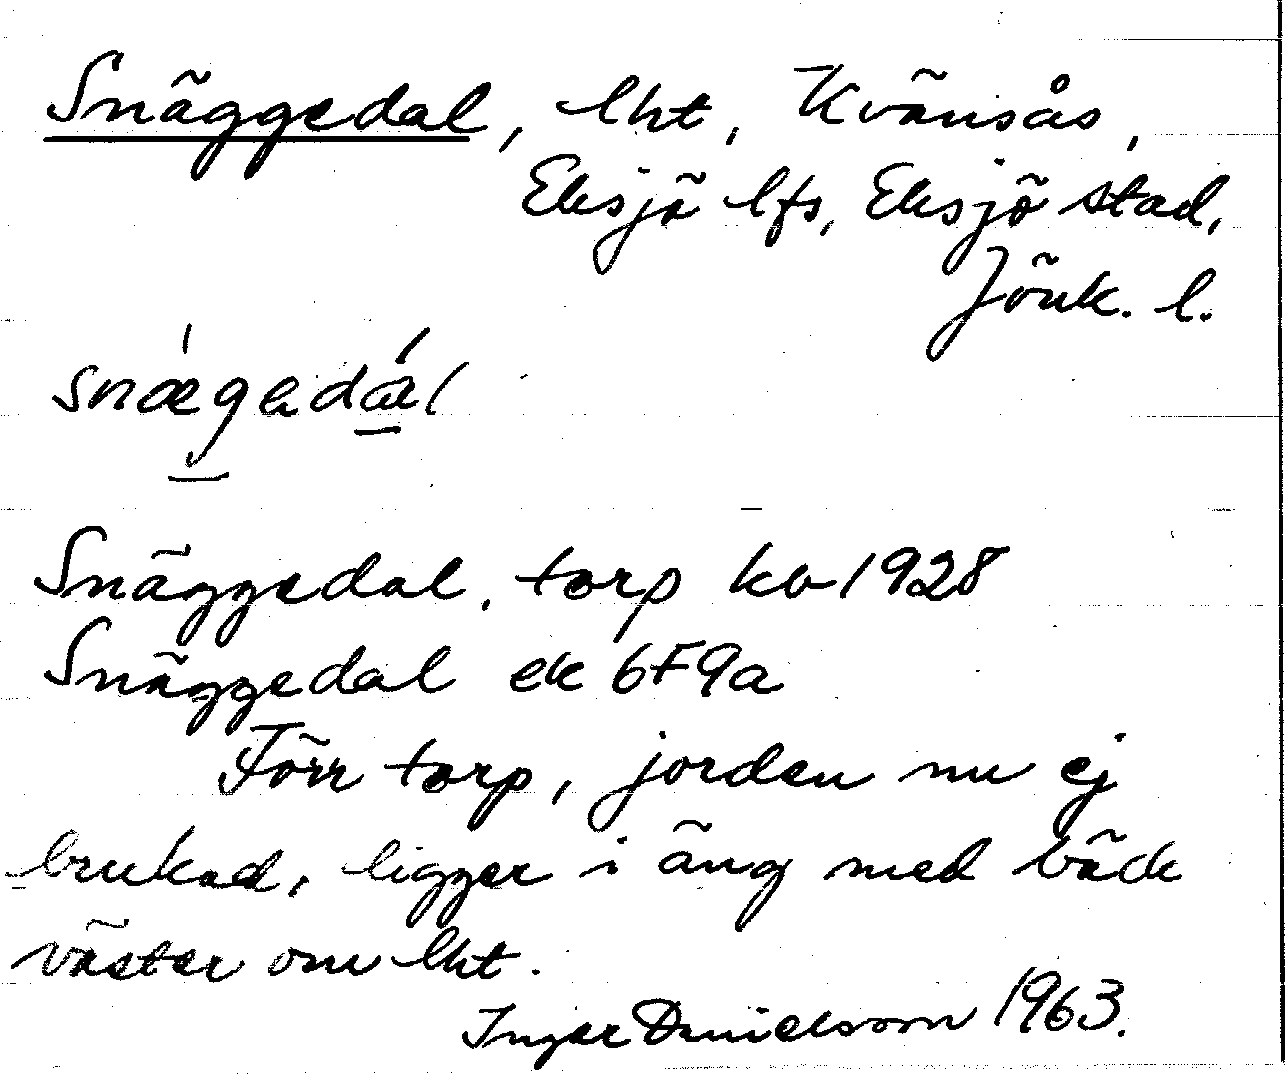 Snäggedal, lht, Kvänsås,
Eksjö lfs, Eksjö stad,
Jönk. l.
snæ̀gedál
Snäggedal, torp kb 1928
Snäggedal ek 6F9a
Förr torp, jorden nu ej
brukad, ligger i äng med bäck
väster om lht.
Inger Danielsson 1963.